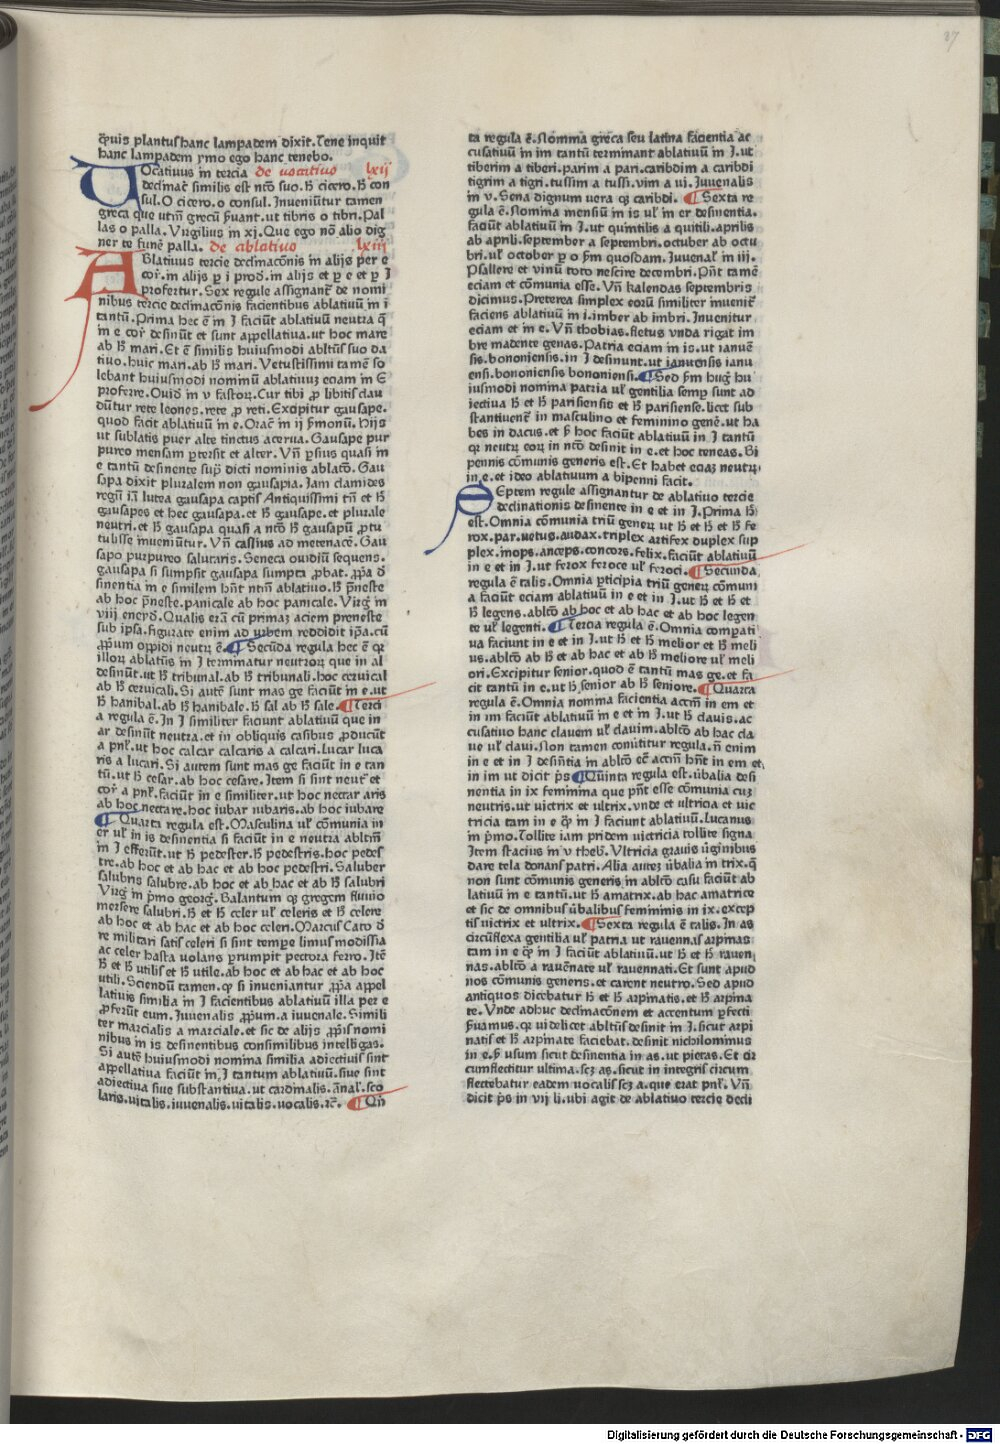 37
q̄uis plantus hanc lampadem dixit. Tene inquit
hanc lampadem ymo ego hanc tenebo.
Uocatiuus in tercia de uocatiuo lxij
declinac̄ similis est nc̄o suo. hͦ cicero. hͦ con
sul. O cicero. o consul. Inueniūtur tamen
greca que utrn̄ grecū ẜuant. ut tibris o tibri. Pal
las o palla. Virgilius in xj. Que ego nō alio dig
ner te funē palla. de ablatiuo lxiij
Ablatiuus tercie declinacōnis in alijs per e
cor̄. in alijs ꝑ i prod̄. in alijs et ꝑ e et ꝑ I
profertur. Sex regule assignant̄ de nomi
nibus tercie declinacōnis facientibus ablatiuū in i
tantū. Prima hec ē in I faciūt ablatiuū neutra q̄
in e cor̄ desinūt et sunt appellatiua. ut hoc mare
ab hͦ mari. Et ē similis huiusmodi abltūs suo da
tiuo. huic mari. ab hͦ mari. Vetustissimi tamē so
lebant huiusmodi nominū ablatiuuꝫ eciam in E
proferre. Ouid̄ in v fastoꝝ. Cur tibi ꝓ libitis clau
dūtur rete leones. rete ꝓ reti. Excipitur gausape.
quod facit ablatiuū in e. Orac̄ in ij ẜmonū. Hijs
ut sublatis puer alte tinctus acerua. Gausape pur
pureo mensam ꝑtersit et alter. Vn̄ ꝑsius quasi in
e tantū desinente sup̄ dicti nominis ablatō. Gau
sapa dixit pluralem non gausapia. Iam clamides
regū iā lutea gausapa captis Antiquissimi tn̄ et hͦ
gausapes et hec gausapa. et hͦ gausape. et plurale
neutri. et hͦ gausapa quasi a nc̄o hͦ gausapū ꝓtu
tulisse inueniūtur. Vn̄ cassius ad mecenacē. Gau
sapo purpureo salutaris. Seneca ouidiū sequens.
gausapa si sumpsit gausapa sumpta ꝓbat. ꝓpa d̄
sinentia in e similem hn̄t ntm̄ ablatiuo. hͦ p̄neste
ab hoc p̄neste. panicale ab hoc panicale. Virḡ in
viij eneyd̄. Qualis erā cū primaꝫ aciem preneste
sub ipsa. figurate enim ad urbem reddidit ip̄a. cū
ꝓp̄um oppidi neutꝝ ē. Secūda regula hec ē qꝛ
illoꝝ ablatūs in I terminatur neutroꝝ que in al
desinūt. ut hͦ tribunal. ab hͦ tribunali. hoc ceruical
ab hͦ ceruicali. Si autē sunt mas ge faciūt in e. ut
hͦ hanibal. ab hͦ hanibale. hͦ sal ab hͦ sale. Terci
a regula ē. In I similiter faciunt ablatiuū que in
ar desinūt neutra. et in obliquis casibus ꝓducūt
a pnl̄. ut hoc calcar calcaris a calcari. Lucar luca
ris a lucari. Si autem sunt mas ge faciūt in e tan
tū. ut hͦ cesar. ab hoc cesare. Item si sint neut̄ et
cor̄ a pnl̄. faciūt in e similiter. ut hoc nectar aris
ab hoc nectare. hoc iubar iubaris. ab hoc iubare
Quarta regula est. Masculina ul̄ cōmunia in
er ul̄ in is desinentia si faciūt in e neutra abltm̄
in I efferūt. ut hͦ pedester. hͦ pedestris. hoc pedes
tre. ab hoc et ab hac et ab hoc pedestri. Saluber
salubris salubre. ab hoc et ab hac et ab hͦ salubri
Virḡ in p̄mo georḡ. Balantum qꝫ gregem fluuio
mersere salubri. hͦ et hͦ celer ul̄ celeris et hͦ celere
ab hoc et ab hac et ab hoc celeri. Marcus Cato d̄
re militari satis celeri si sint tempe limus modissia
ac celer hasta uolans ꝑrumpit pectora ferro. Itē
hͦ et hͦ utilis et hͦ utile. ab hoc et ab hac et ab hoc
utili. Sciendū tamen. qꝫ si inueniantur ꝓpa appel
latiuis similia in I facientibus ablatiuū illa per e
ꝓferūt eum. Iuuenalis ꝓp̄um. a iuuenale. Simili
ter marcialis a marciale. et sic de alijs ꝓpīs nomi
nibus in is desinentibus consimilibus intelligas.
Si autē huiusmodi nomina similia adiectiuis sint
appellatiua faciūt in I tantum ablatiuū. siue sint
adiectiua siue substantiua. ut cardinalis. ānal̄. sco
laris. uitalis. iuuenalis. uitalis. uocalis. ⁊c̄. Quī
ta regula ē. Nomina greca seu latina facientia ac
cusatiuū in im tantū terminant ablatiuū in I. ut
tiberim a tiberi. parim a pari. caribdim a caribdi
tigrim a tigri. tussim a tussi. vim a ui. Iuuenalis
in v. Sena dignum uera qꝫ caribdi. Sexta re
gula ē. Nomina mensiū in is ul̄ in er desinentia.
faciūt ablatiuū in I. ut quintilis a quitili. aprilis
ab aprili. september a septembri. octuber ab octu
bri. ul̄ october ꝑ o ẜm quosdam. Iuuenal̄ in iii.
Psallere et vinū toto nescire decembri. Pn̄t tamē
eciam et cōmunia esse. Vn̄ kalendas septembris
dicimus. Preterea simplex eorū similiter inuenit̄
faciens ablatiuū in i. imber ab imbri. Inuenitur
eciam et in e. Vn̄ thobias. fletus vnda rigat im
bre madente genas. Patria eciam in is. ut ianuē
sis. bononiensis. in I desinunt. ut ianuensis ianu
ensi. bononiensis bononiensi. Sed ẜm huḡ hu
iusmodi nomina patria ul̄ gentilia semꝑ sunt ad
iectiua hͦ et hͦ parisiensis et hͦ parisiense. licet sub
stantiuent̄ in masculino et feminino genē. ut ha
bes in dacus. et ꝑ hoc faciūt ablatiuū in I tantū
qꝛ neutꝝ eoꝝ in nc̄o desinit in e. et hoc teneas. Bi
pennis cōmunis generis est. Et habet eciaꝫ neutꝝ
in e. et ideo ablatiuum a bipenni facit.
Septem regule assignantur de ablatiuo tercie
declinationis desinente in e et in I. Prima hͦ
est. Omnia cōmunia triū geneꝝ ut hͦ et hͦ et hͦ fe
rox. par. uetus. audax. triplex artifex duplex sup
plex. inops. anceps. concors. felix. faciūt ablatiuū
in e et in I. ut ferox feroce ul̄ feroci. Secunda
regula ē talis. Omnia ꝑticipia triū geneꝝ cōmuni
a faciūt eciam ablatiuū in e et in I. ut hͦ et hͦ et
hͦ legens. abltō ab hoc et ab hac et ab hoc legen
te ul̄ legenti. Tercia regula ē. Omnia compati
ua faciunt in e et in I. ut hͦ et hͦ melior et hͦ meli
us. abltō ab hͦ et ab hac et ab hͦ meliore ul̄ meli
ori. Excipitur senior. quod ē tantū mas ge. et fa
cit tantū in e. ut hͦ senior ab hͦ seniore. Quarta
regula ē. Omnia nomina facientia acctm̄ in em et
in im faciūt ablatiuū in e et in I. ut hͦ clauis. ac
cusatiuo hanc clauem ul̄ clauim. abltō ab hac cla
ue ul̄ claui. Non tamen conūtitur regula. n̄ enim
in e et in I desinētia in abltō ec̄ acctm̄ hn̄t in em et
in im ut dicit p̄s Quinta regula est. ūbalia desi
nentia in ix feminina que pn̄t esse cōmunia cuꝫ
neutris. ut uictrix et ultrix. vnde et ultricia et uic
tricia tam in e q̄ꝫ in I faciunt ablatiuū. Lucanus
in p̄mo. Tollite iam pridem uictricia tollite signa
Item stacius in v theb̄. Vltricia grauis ūginibus
dare tela donans patri. Alia auteꝫ ūbalia in trix. q̄
non sunt cōmunis generis in abltō casu faciūt ab
latiuū in e tantū. ut hͦ amatrix. ab hac amatrice
et sic de omnibus ūbalibus femininis in ix. excep
tis uictrix et ultrix. Sexta regula ē talis. In as
circūflexa gentilia ul̄ patria ut rauennas arpinas
tam in e q̄ꝫ in I faciūt ablatiuū. ut hͦ et hͦ rauen
nas. abltō a rauēnate ul̄ rauennati. Et sunt apud
nos cōmunis generis. et carent neutro. Sed apud
antiquos dicebatur hͦ et hͦ arpinatis. et hͦ arpina
te. Vnde adhuc declinacōnem et accentum ꝑfecti
ẜuamus. qꝛ uidelicet abltūs desinit in I. sicut arpi
natis et hͦ arpinate faciebat. desinit nichilominus
in e. ꝑ usum sicut desinentia in as. ut pietas. Et cir
cumflectitur ultima. scꝫ as. sicut in integris circum
flectebatur eadem uocalis scꝫ a. que erat pnl̄. Vn̄
dicit p̄s in vij li. ubi agit de ablatiuo tercie decli
Digitalisierung gefördert durch die Deutsche Forschungsgemeinschaft - DFG